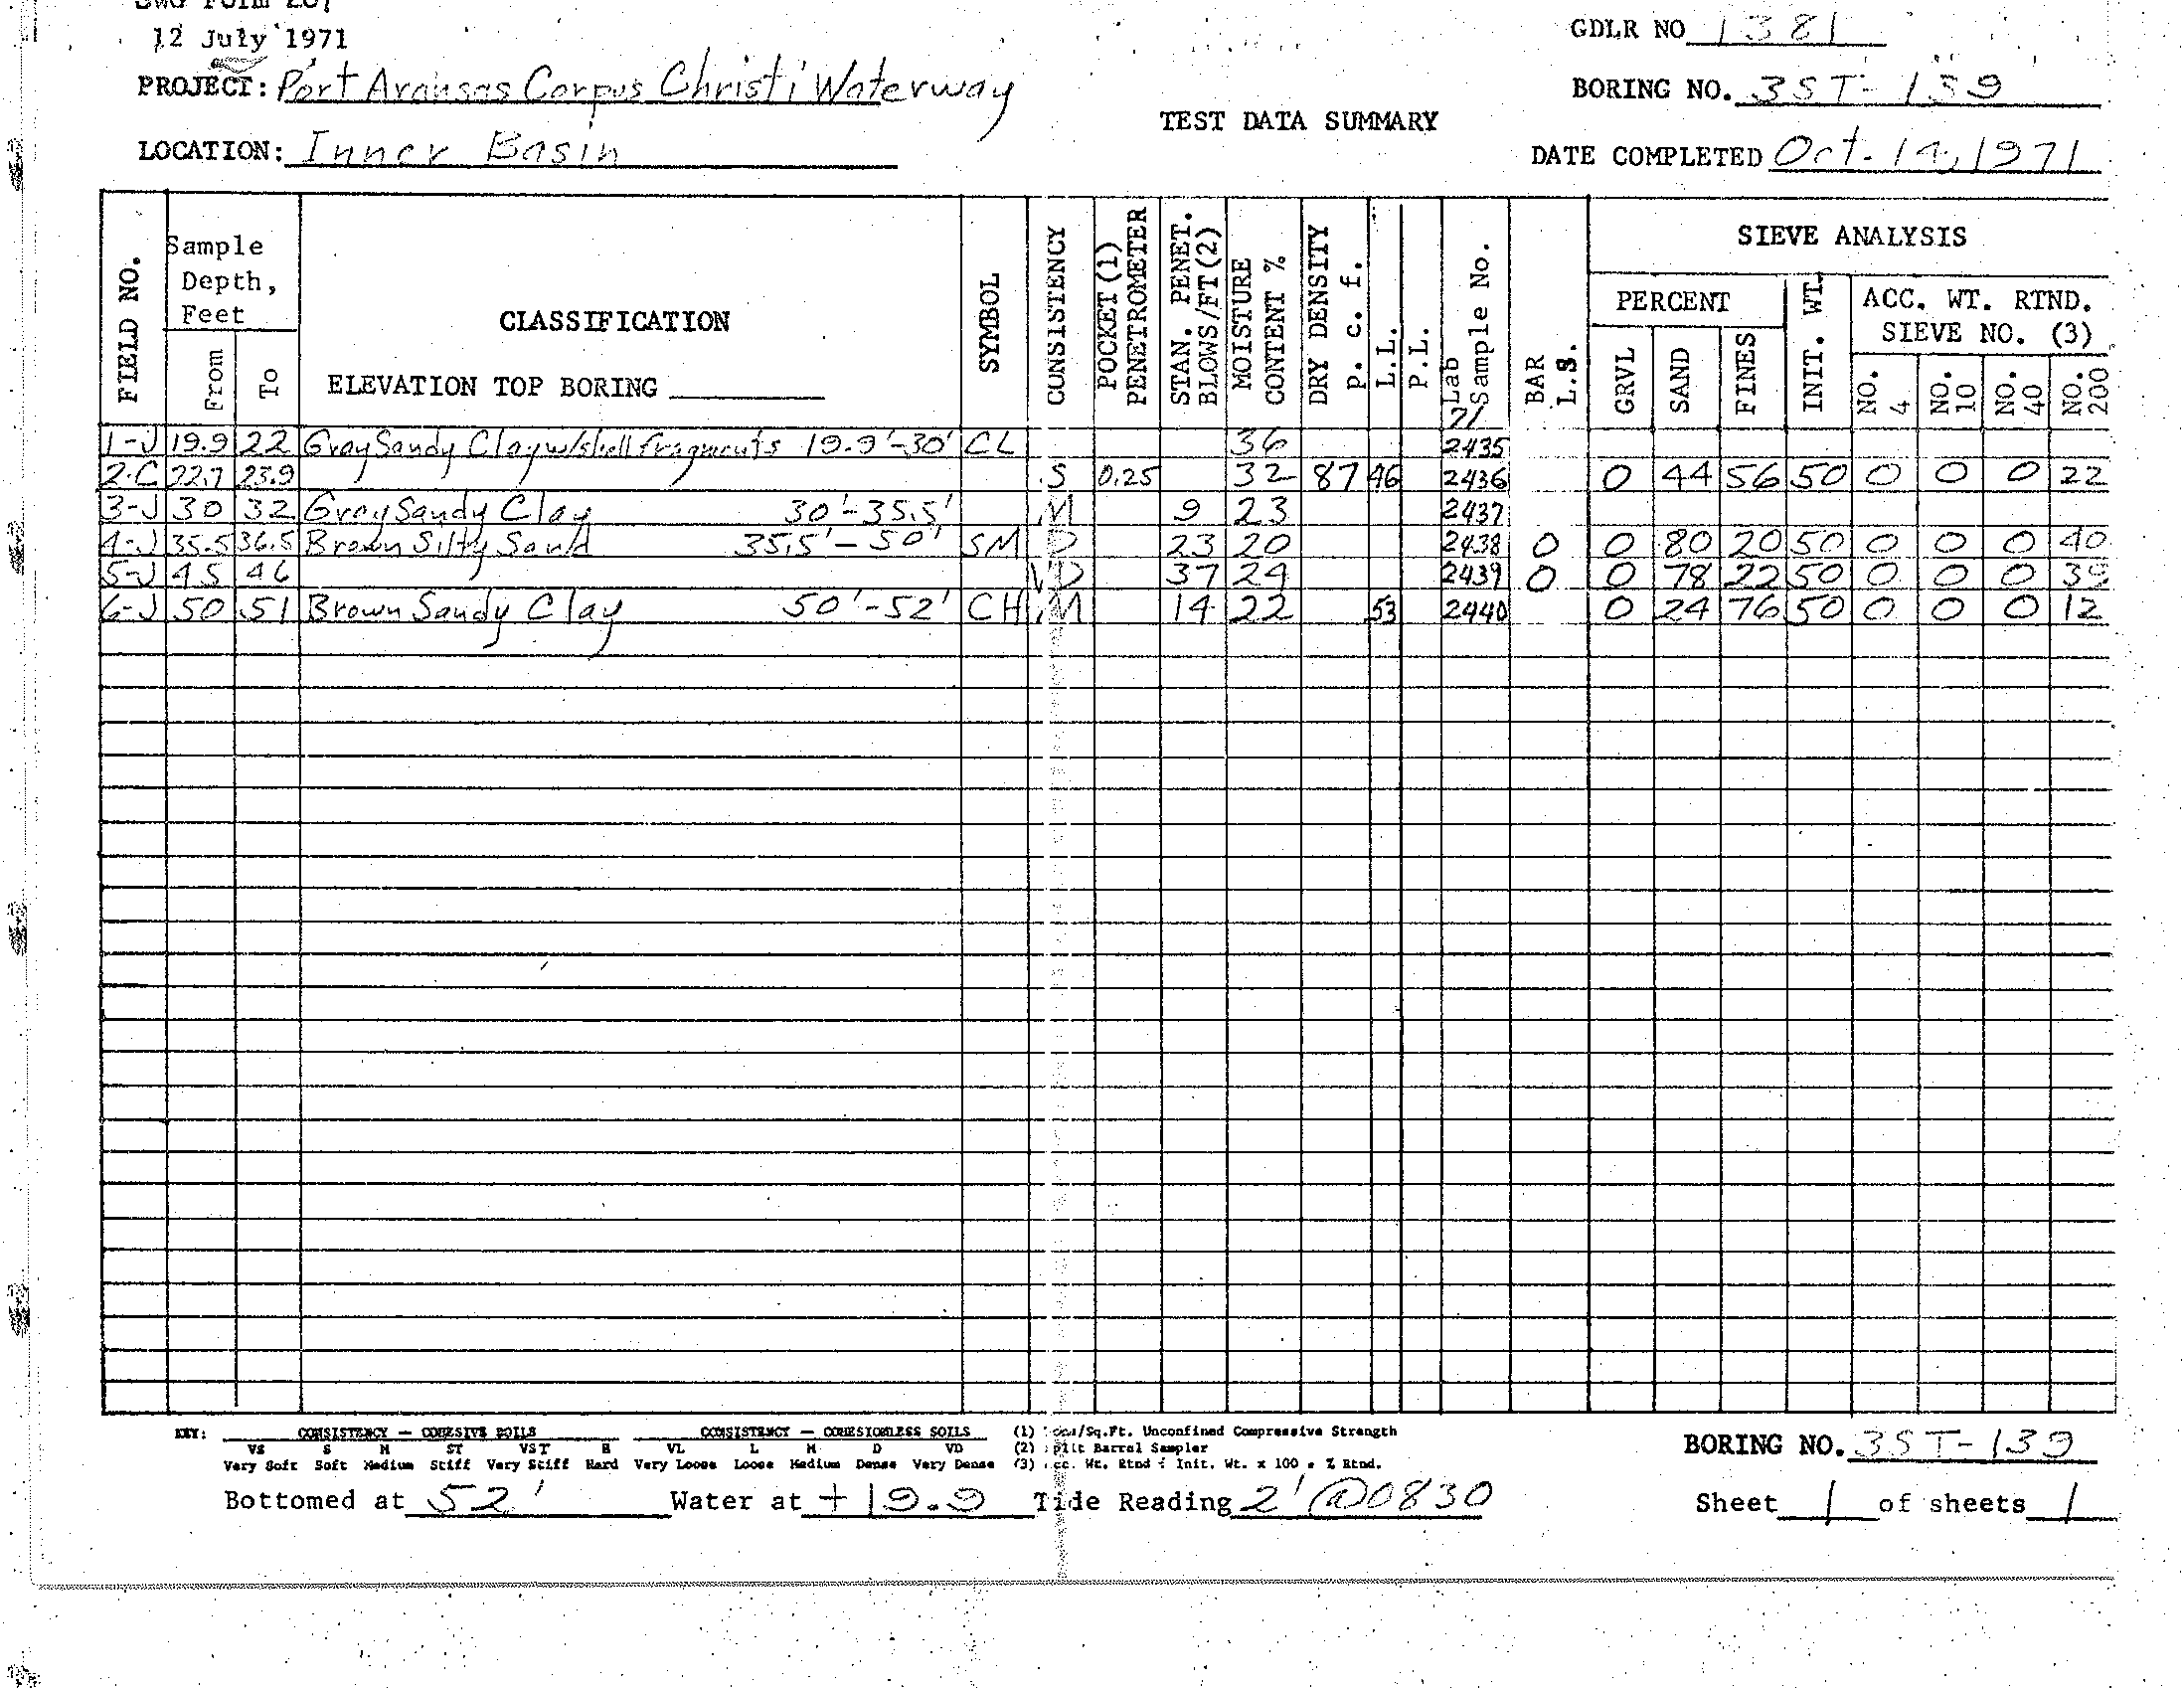 SWG Form 201
12 July 1971
GDLR NO 1381
PROJECT: Port Aransas Corpus Christi Waterway
BORING NO. 3ST-139
TEST DATA SUMMARY
LOCATION: Inner Basin
DATE COMPLETED Oct. 14, 1971
FIELD NO. Sample Depth, Feet From To CLASSIFICATION ELEVATION TOP BORING SYMBOL CUNSISTENCY POCKET (1) PENETROMETER STAN. PENET. BLOWS/FT (2) MOISTURE CONTENT % DRY DENSITY P. c. f. L.L. P.L. Lab Sample No. 71 BAR L.S. SIEVE ANALYSIS PERCENT GRVL SAND FINES INIT. WT. ACC. WT. RTND. SIEVE NO. (3) NO. 4 NO. 10 NO. 40 NO. 200
1-J 19.9 22 Gray Sandy Clay w/shell fragments 19.9'-30' CL 36 2435
2-C 22.7 23.9 S 0.25 32 87 46 2436 0 44 56 50 0 0 0 22
3-J 30 32 Gray Sandy Clay 30'-35.5' M 9 23 2437
4-J 35.5 36.5 Brown Silty Sand 35.5'-50' SM D 23 20 2438 0 0 80 20 50 0 0 0 40
5-J 45 46 VD 37 24 2439 0 0 78 22 50 0 0 0 39
6-J 50 51 Brown Sandy Clay 50'-52' CH M 14 22 53 2440 0 24 76 50 0 0 0 12
KEY: CONSISTENCY - COHESIVE SOILS CONSISTENCY - COHESIONLESS SOILS (1) Tons/Sq.Ft. Unconfined Compressive Strength
VS S M ST VST H VL L M D VD (2) Split Barrel Sampler
Very Soft Soft Medium Stiff Very Stiff Hard Very Loose Loose Medium Dense Very Dense (3) Acc. Wt. Rtnd ÷ Init. Wt. x 100 = % Rtnd.
BORING NO. 3ST-139
Bottomed at 52' Water at +19.9 Tide Reading 2' @0830 Sheet 1 of sheets 1